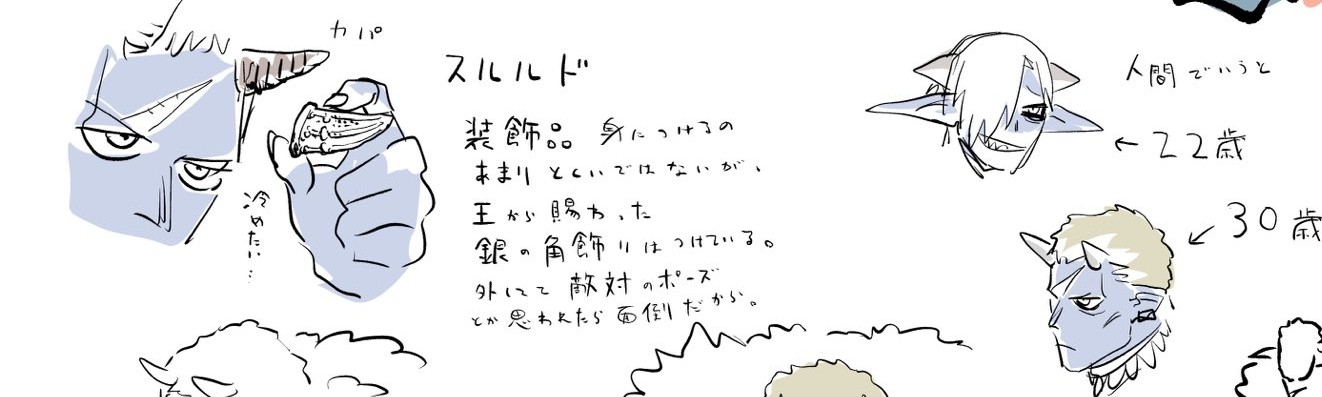 カパ
スルルド
装飾品 身につけるの
あまりとくいではないが、
王から賜わった
銀の角飾りはつけている。
外してて敵対のポーズ
とか思われたら面倒だから。
冷めたい…
人間でいうと
←22歳
←30歳